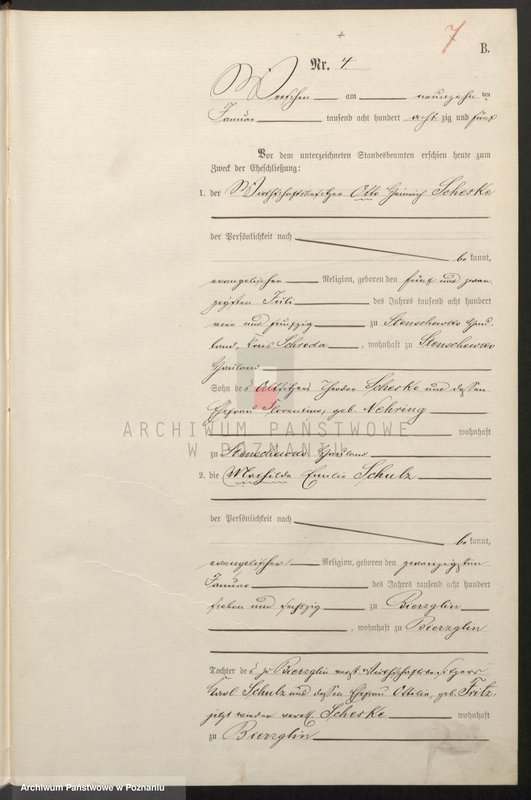 7
B.
Nr. 4
Wreschen am neunzehn ten
Januar tausend acht hundert acht zig und fünf
Vor dem unterzeichneten Standesbeamten erschien heute zum
Zweck der Eheschließung:
1. der Wirthschaftsbesitzer Otto Heinrich Scheske
der Persönlichkeit nach
be kannt,
evangelischer Religion, geboren den fünf und zwan-
zigsten Juli des Jahres tausend acht hundert
vier und fünfzig zu Stenschewo Hau-
land, Kreis Schroda, wohnhaft zu Stenschewo
Hauland
Sohn des Altsitzers Theodor Scheske und dessen
Ehefrau Florentine, geb. Nehring
wohnhaft
zu Stenschewo Hauland
2. die Mathilde Emilie Schulz
der Persönlichkeit nach
be kannt,
evangelischer Religion, geboren den zwanzigsten
Januar des Jahres tausend acht hundert
sieben und sechszig zu Bierzglin
, wohnhaft zu Bierzglin
Tochter des zu Bierzglin verst. Wirthschaftsbesitzers
Karl Schulz und dessen Ehefrau Ottilie, geb. Fritz,
jetzt wieder vereh. Scheske wohnhaft
zu Bierzglin
ARCHIWUM PAŃSTWOWE
W POZNANIU
Archiwum Państwowe w Poznaniu